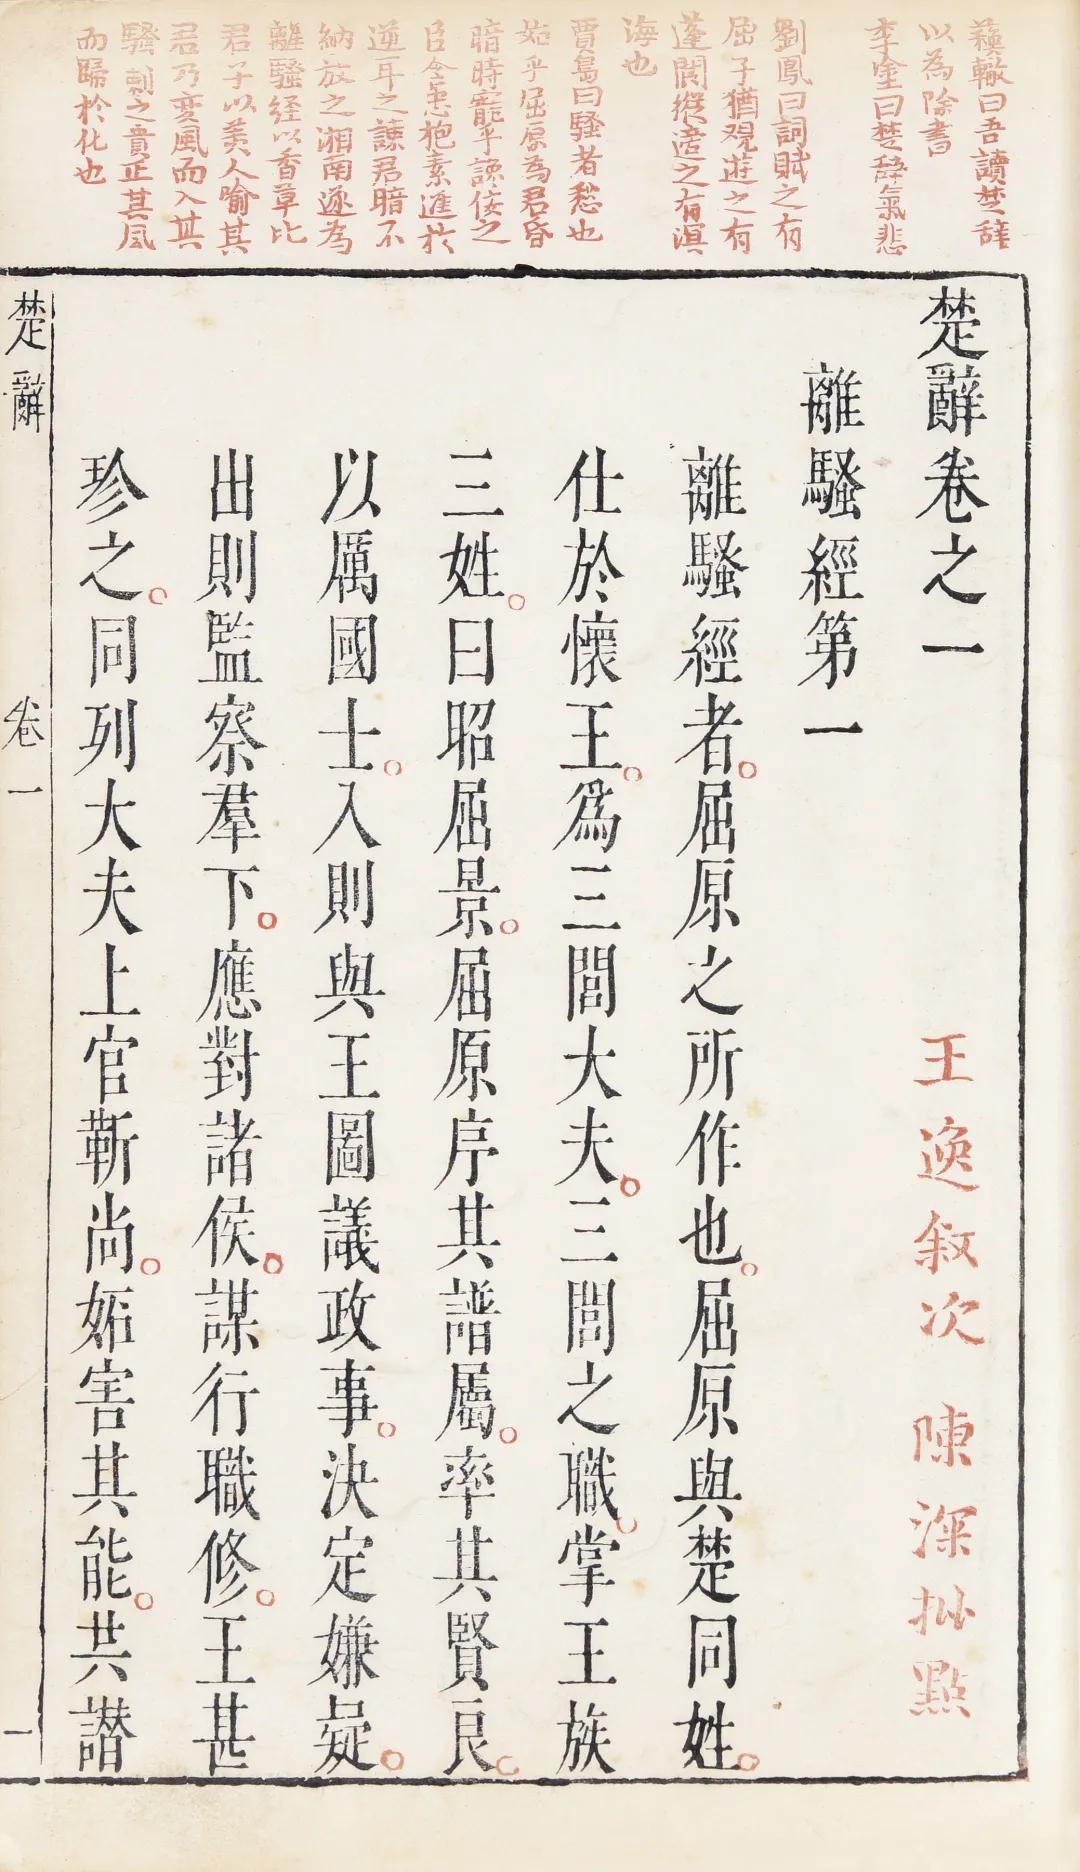 蘓轍曰吾讀楚辭
以為除書
李塗曰楚辭氣悲
劉鳳曰詞賦之有
屈子猶觀遊之有
蓬閬縱適之有溟
海也
賈島曰騷者愁也
始乎屈原為君昏
暗時寵乎讒佞之
臣含忠抱素進於
逆耳之諫君暗不
納放之湘南遂為
離騷経以香草比
君子以美人喻其
君乃変風而入其
騷刺之貴正其風
而歸於化也
楚辭卷之一
王逸叙次 陳深批點
離騷經第一
離騷經者屈原之所作也屈原與楚同姓
仕於懷王為三閭大夫三閭之職掌王族
三姓曰昭屈景屈原序其譜屬率其賢良
以厲國士入則與王圖議政事決定嫌疑
出則監察羣下應對諸侯謀行職修王甚
珍之同列大夫上官靳尚妬害其能共譖
楚辭 卷一 一